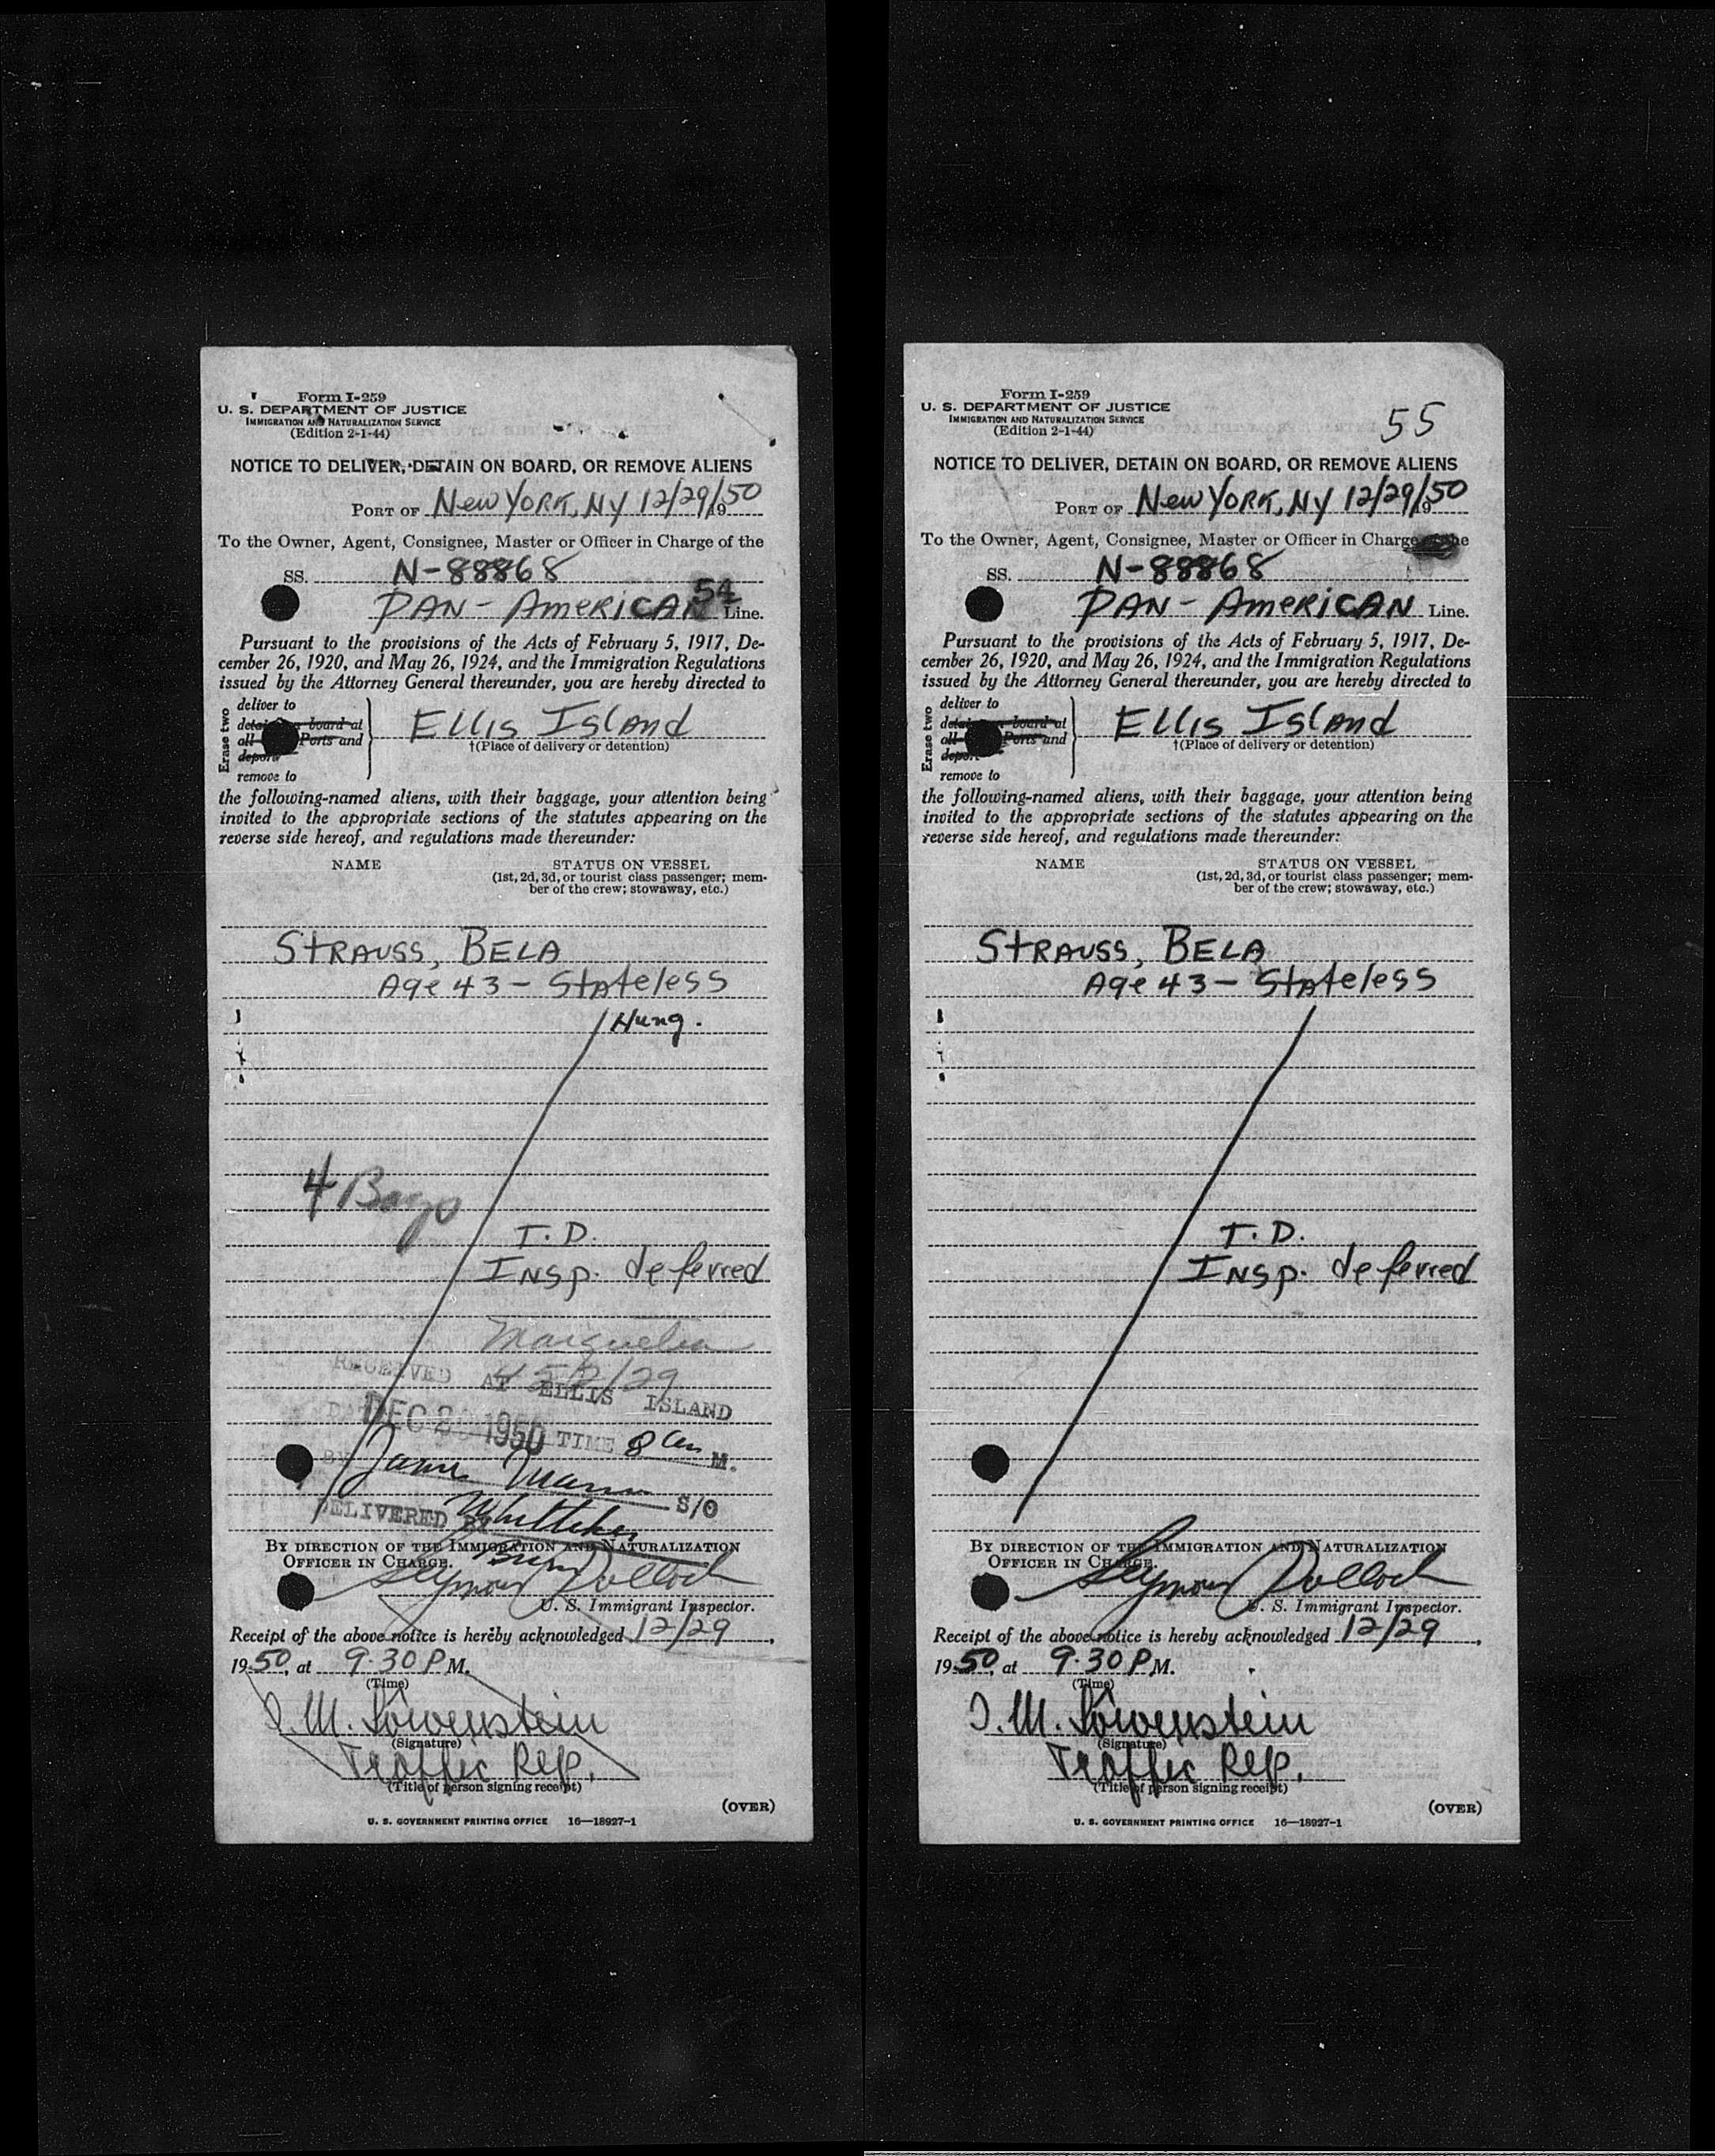 Form I-259
U. S. DEPARTMENT OF JUSTICE
IMMIGRATION AND NATURALIZATION SERVICE
(Edition 2-1-44)
NOTICE TO DELIVER, DETAIN ON BOARD, OR REMOVE ALIENS
PORT OF New YORK, NY 12/29/1950
To the Owner, Agent, Consignee, Master or Officer in Charge of the
SS. N-88868
54
PAN-AMERICAN Line.
Pursuant to the provisions of the Acts of February 5, 1917, De-
cember 26, 1920, and May 26, 1924, and the Immigration Regulations
issued by the Attorney General thereunder, you are hereby directed to
Erase two
deliver to
board at
all Ports and
deport
remove to
ELLIS ISLAND
†(Place of delivery or detention)
the following-named aliens, with their baggage, your attention being
invited to the appropriate sections of the statutes appearing on the
reverse side hereof, and regulations made thereunder:
NAME STATUS ON VESSEL
(1st, 2d, 3d, or tourist class passenger; mem-
ber of the crew; stowaway, etc.)
STRAUSS, BELA
Age 43 - Stateless
Hung.
4 Bags
T.D.
INSP. deferred
RECEIVED AT ELLIS ISLAND
DATE DEC 1950 TIME 8 am M.
BY James S/O
DELIVERED BY Whittaker
BY DIRECTION OF THE IMMIGRATION AND NATURALIZATION
OFFICER IN CHARGE.
Seymour Pollock
U. S. Immigrant Inspector.
Receipt of the above notice is hereby acknowledged 12/29,
1950, at 9.30 P M.
(Time)
J. M. Lowenstein
(Signature)
Traffic Rep.
(Title of person signing receipt)
(OVER)
U. S. GOVERNMENT PRINTING OFFICE 16—18927-1
Form I-259
U. S. DEPARTMENT OF JUSTICE
IMMIGRATION AND NATURALIZATION SERVICE
(Edition 2-1-44)
55
NOTICE TO DELIVER, DETAIN ON BOARD, OR REMOVE ALIENS
PORT OF New YORK, NY 12/29/1950
To the Owner, Agent, Consignee, Master or Officer in Charge of the
SS. N-88868
PAN-AMERICAN Line.
Pursuant to the provisions of the Acts of February 5, 1917, De-
cember 26, 1920, and May 26, 1924, and the Immigration Regulations
issued by the Attorney General thereunder, you are hereby directed to
Erase two
deliver to
board at
all Ports and
deport
remove to
ELLIS ISLAND
†(Place of delivery or detention)
the following-named aliens, with their baggage, your attention being
invited to the appropriate sections of the statutes appearing on the
reverse side hereof, and regulations made thereunder:
NAME STATUS ON VESSEL
(1st, 2d, 3d, or tourist class passenger; mem-
ber of the crew; stowaway, etc.)
STRAUSS, BELA
Age 43 - Stateless
T.D.
INSP. deferred
BY DIRECTION OF THE IMMIGRATION AND NATURALIZATION
OFFICER IN CHARGE.
Seymour Pollock
U. S. Immigrant Inspector.
Receipt of the above notice is hereby acknowledged 12/29,
1950, at 9.30 P M.
(Time)
J. M. Lowenstein
(Signature)
Traffic Rep.
(Title of person signing receipt)
(OVER)
U. S. GOVERNMENT PRINTING OFFICE 16—18927-1